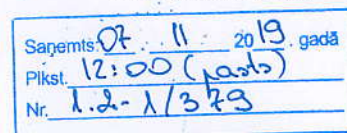 Saņemts: 07. 11 2019. gadā
Plkst. 12:00 (pasts)
Nr. 1.2-1/379